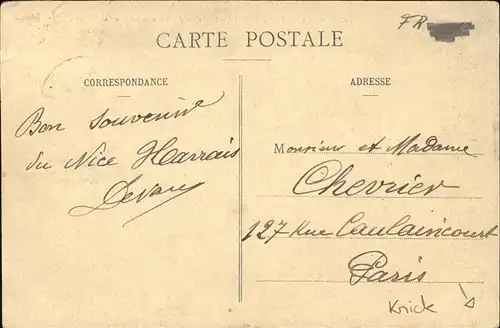 FR
CARTE POSTALE
CORRESPONDANCE
Bon Souvenir
du Nice Havrais
ADRESSE
Monsieur et Madame
Chevrier
127 Rue Caulaincourt
Paris
Knick